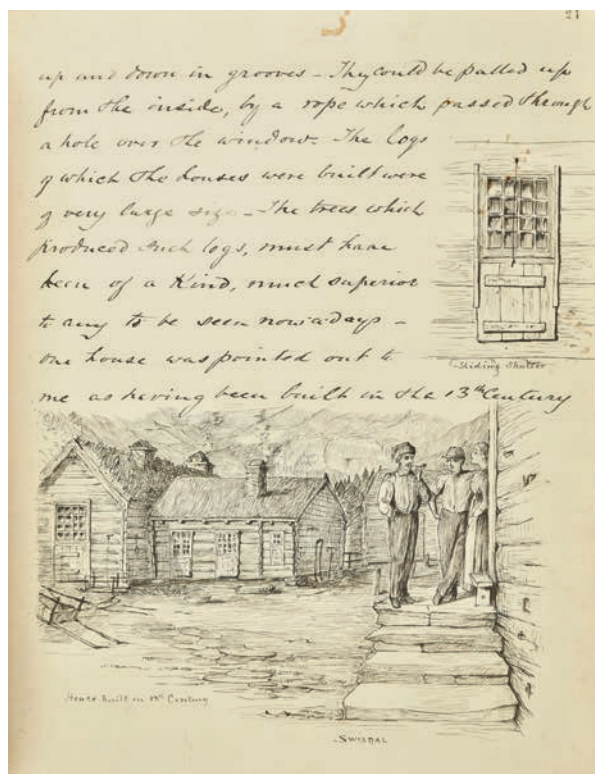 27
up and down in grooves – They could be pulled up
from the inside, by a rope which passed through
a hole over the window. The logs
of which the houses were built were
of very large size – The trees which
produced such logs, must have
been of a Kind, much superior
to any to be seen nowadays –
one house was pointed out to
me as having been built in the 13th Century
Sliding Shutter
House built in 13th Century